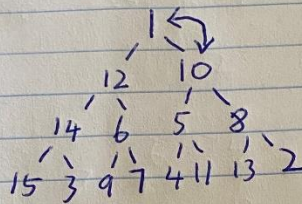 1
12 10
14 6 5 8
15 3 9 7 4 11 13 2